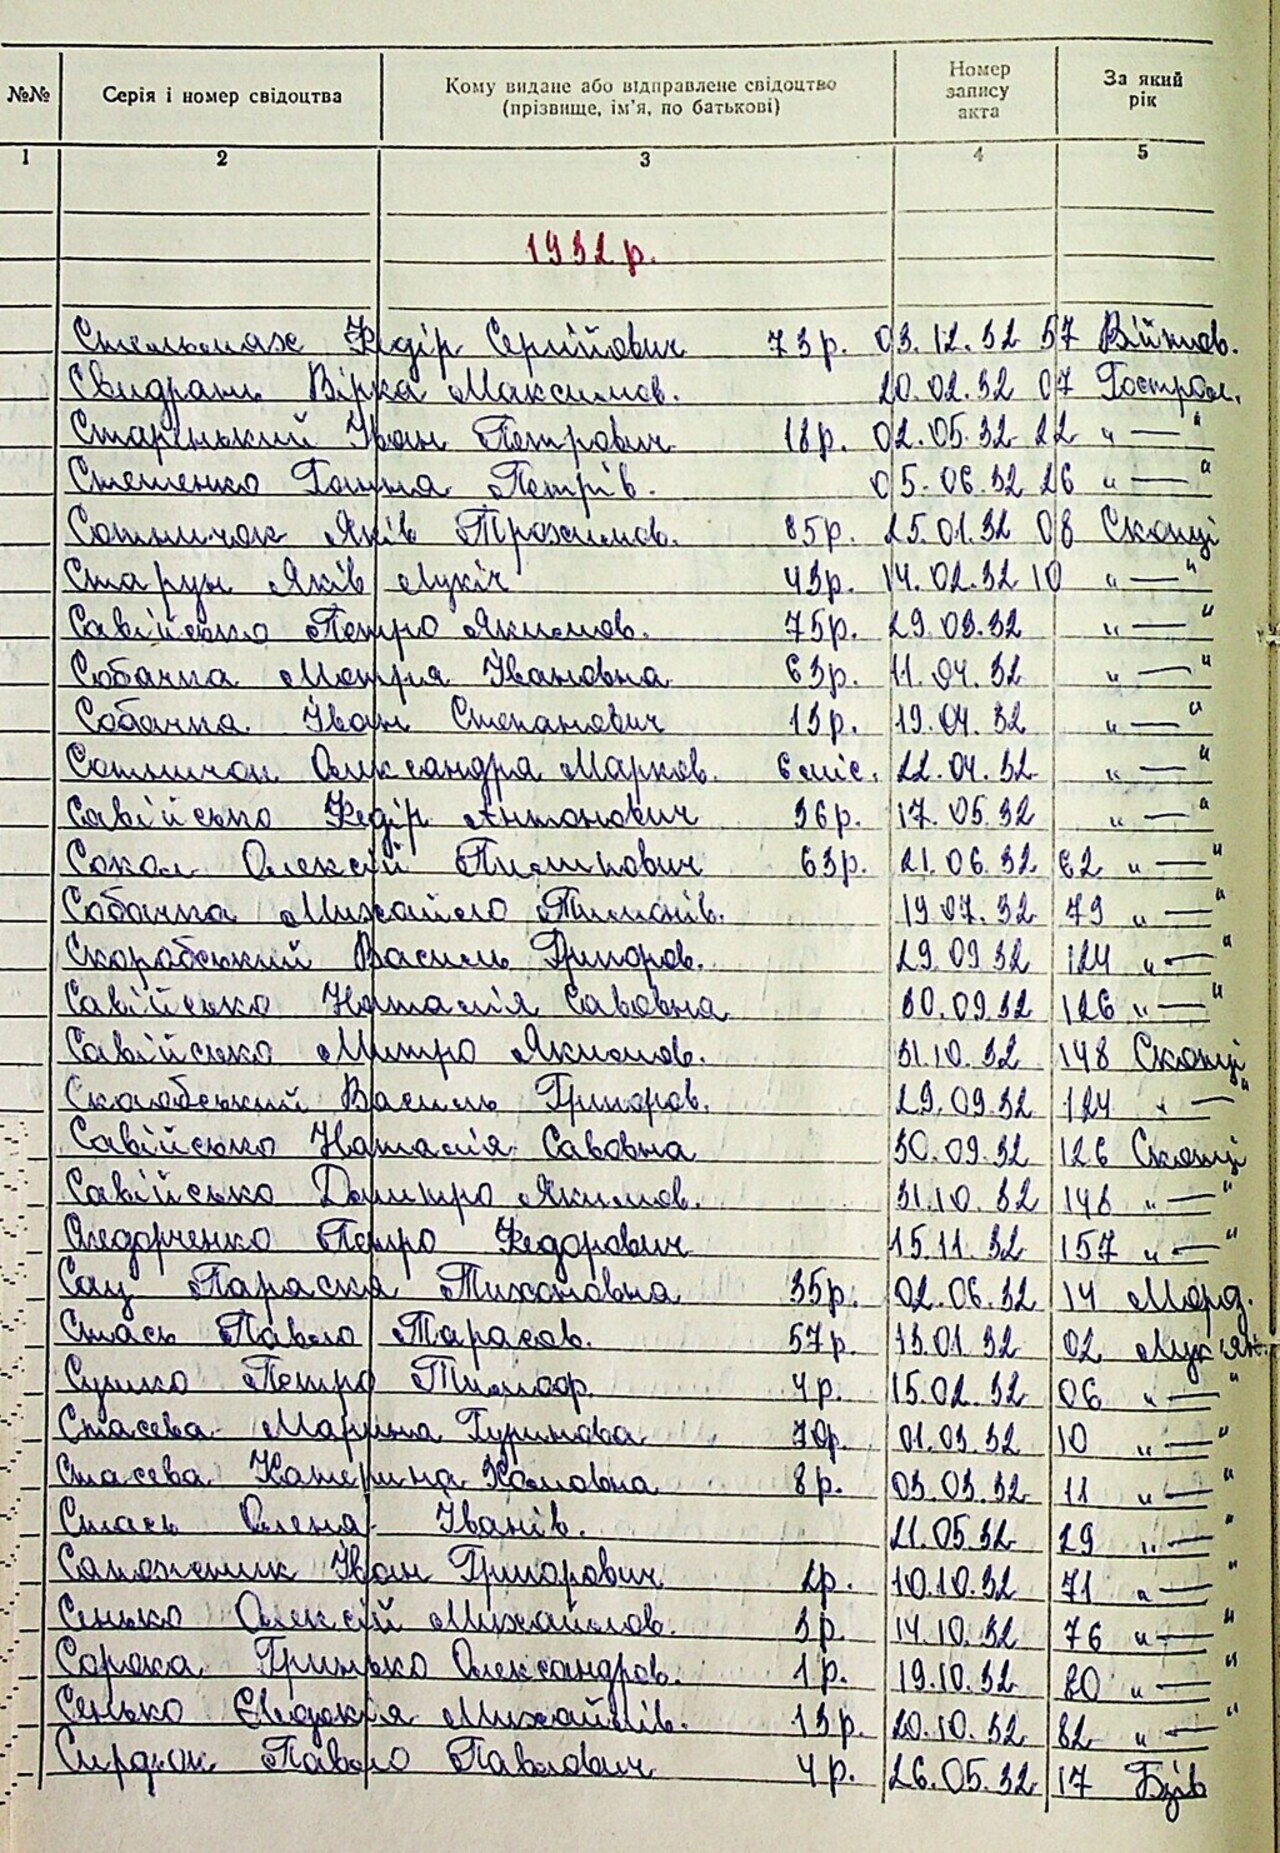 №№ Серія і номер свідоцтва Кому видане або відправлене свідоцтво (прізвище, ім'я, по батькові) Номер запису акта За який рік
1 2 3 4 5
1932 р.
Стельмах Федір Сергійович 73 р. 03.12.32 57 Війтов.
Свидрань Вірка Максимов. 20.02.32 07 Гострол.
Старенький Іван Петрович 18 р. 02.05.32 22 " — "
Степенко Ганна Петрів. 05.06.32 26 " — "
Сотничок Яків Трохимов. 85 р. 25.01.32 08 Скопці
Старун Яків Лукіч 43 р. 14.02.32 10 " — "
Савійсько Петро Якимов. 75 р. 29.03.32 " — "
Собачка Мотря Івановна 63 р. 11.04.32 " — "
Собачка Іван Степанович 13 р. 19.04.32 " — "
Сотничок Олександра Марков. 6 міс. 22.04.32 " — "
Савійсько Федір Антонович 36 р. 17.05.32 " — "
Сокол Олексій Пилипович 63 р. 21.06.32 62 " — "
Собачка Михайло Тимонів. 19.07.32 79 " — "
Скорабський Василь Григоров. 29.09.32 124 " — "
Савійсько Наталія Савовна 30.09.32 126 " — "
Савійсько Митро Якимов. 31.10.32 148 Скопці
Василь Григоров. 29.09.32 124 " — "
Савійсько Наталія Савовна 30.09.32 126 Скопці
Савійсько Дмитро Якимов. 31.10.32 148 " — "
Сидорченко Петро Федорович 15.11.32 157 " — "
Сац Параска Тихоновна 35 р. 02.06.32 14 Морд.
Стась Павло Тарасов. 57 р. 13.01.32 02 Лук'ян.
Сушко Петро Тимоф. 4 р. 15.02.32 06 " — "
Стасева Марина Гуринова 70 р. 01.03.32 10 " — "
Стасева Катерина Хомовна 8 р. 03.03.32 11 " — "
Стась Олена Іванів. 21.05.32 29 " — "
Сапоженик Іван Григорович 2 р. 10.10.32 71 " — "
Сенько Олексій Михайлов. 3 р. 14.10.32 76 " — "
Сорока Гринько Олександров. 1 р. 19.10.32 80 " — "
Сенько Євдокія Михайлів. 13 р. 20.10.32 82 " — "
Сердюк Павло Павлович 4 р. 26.05.32 17 Бзів